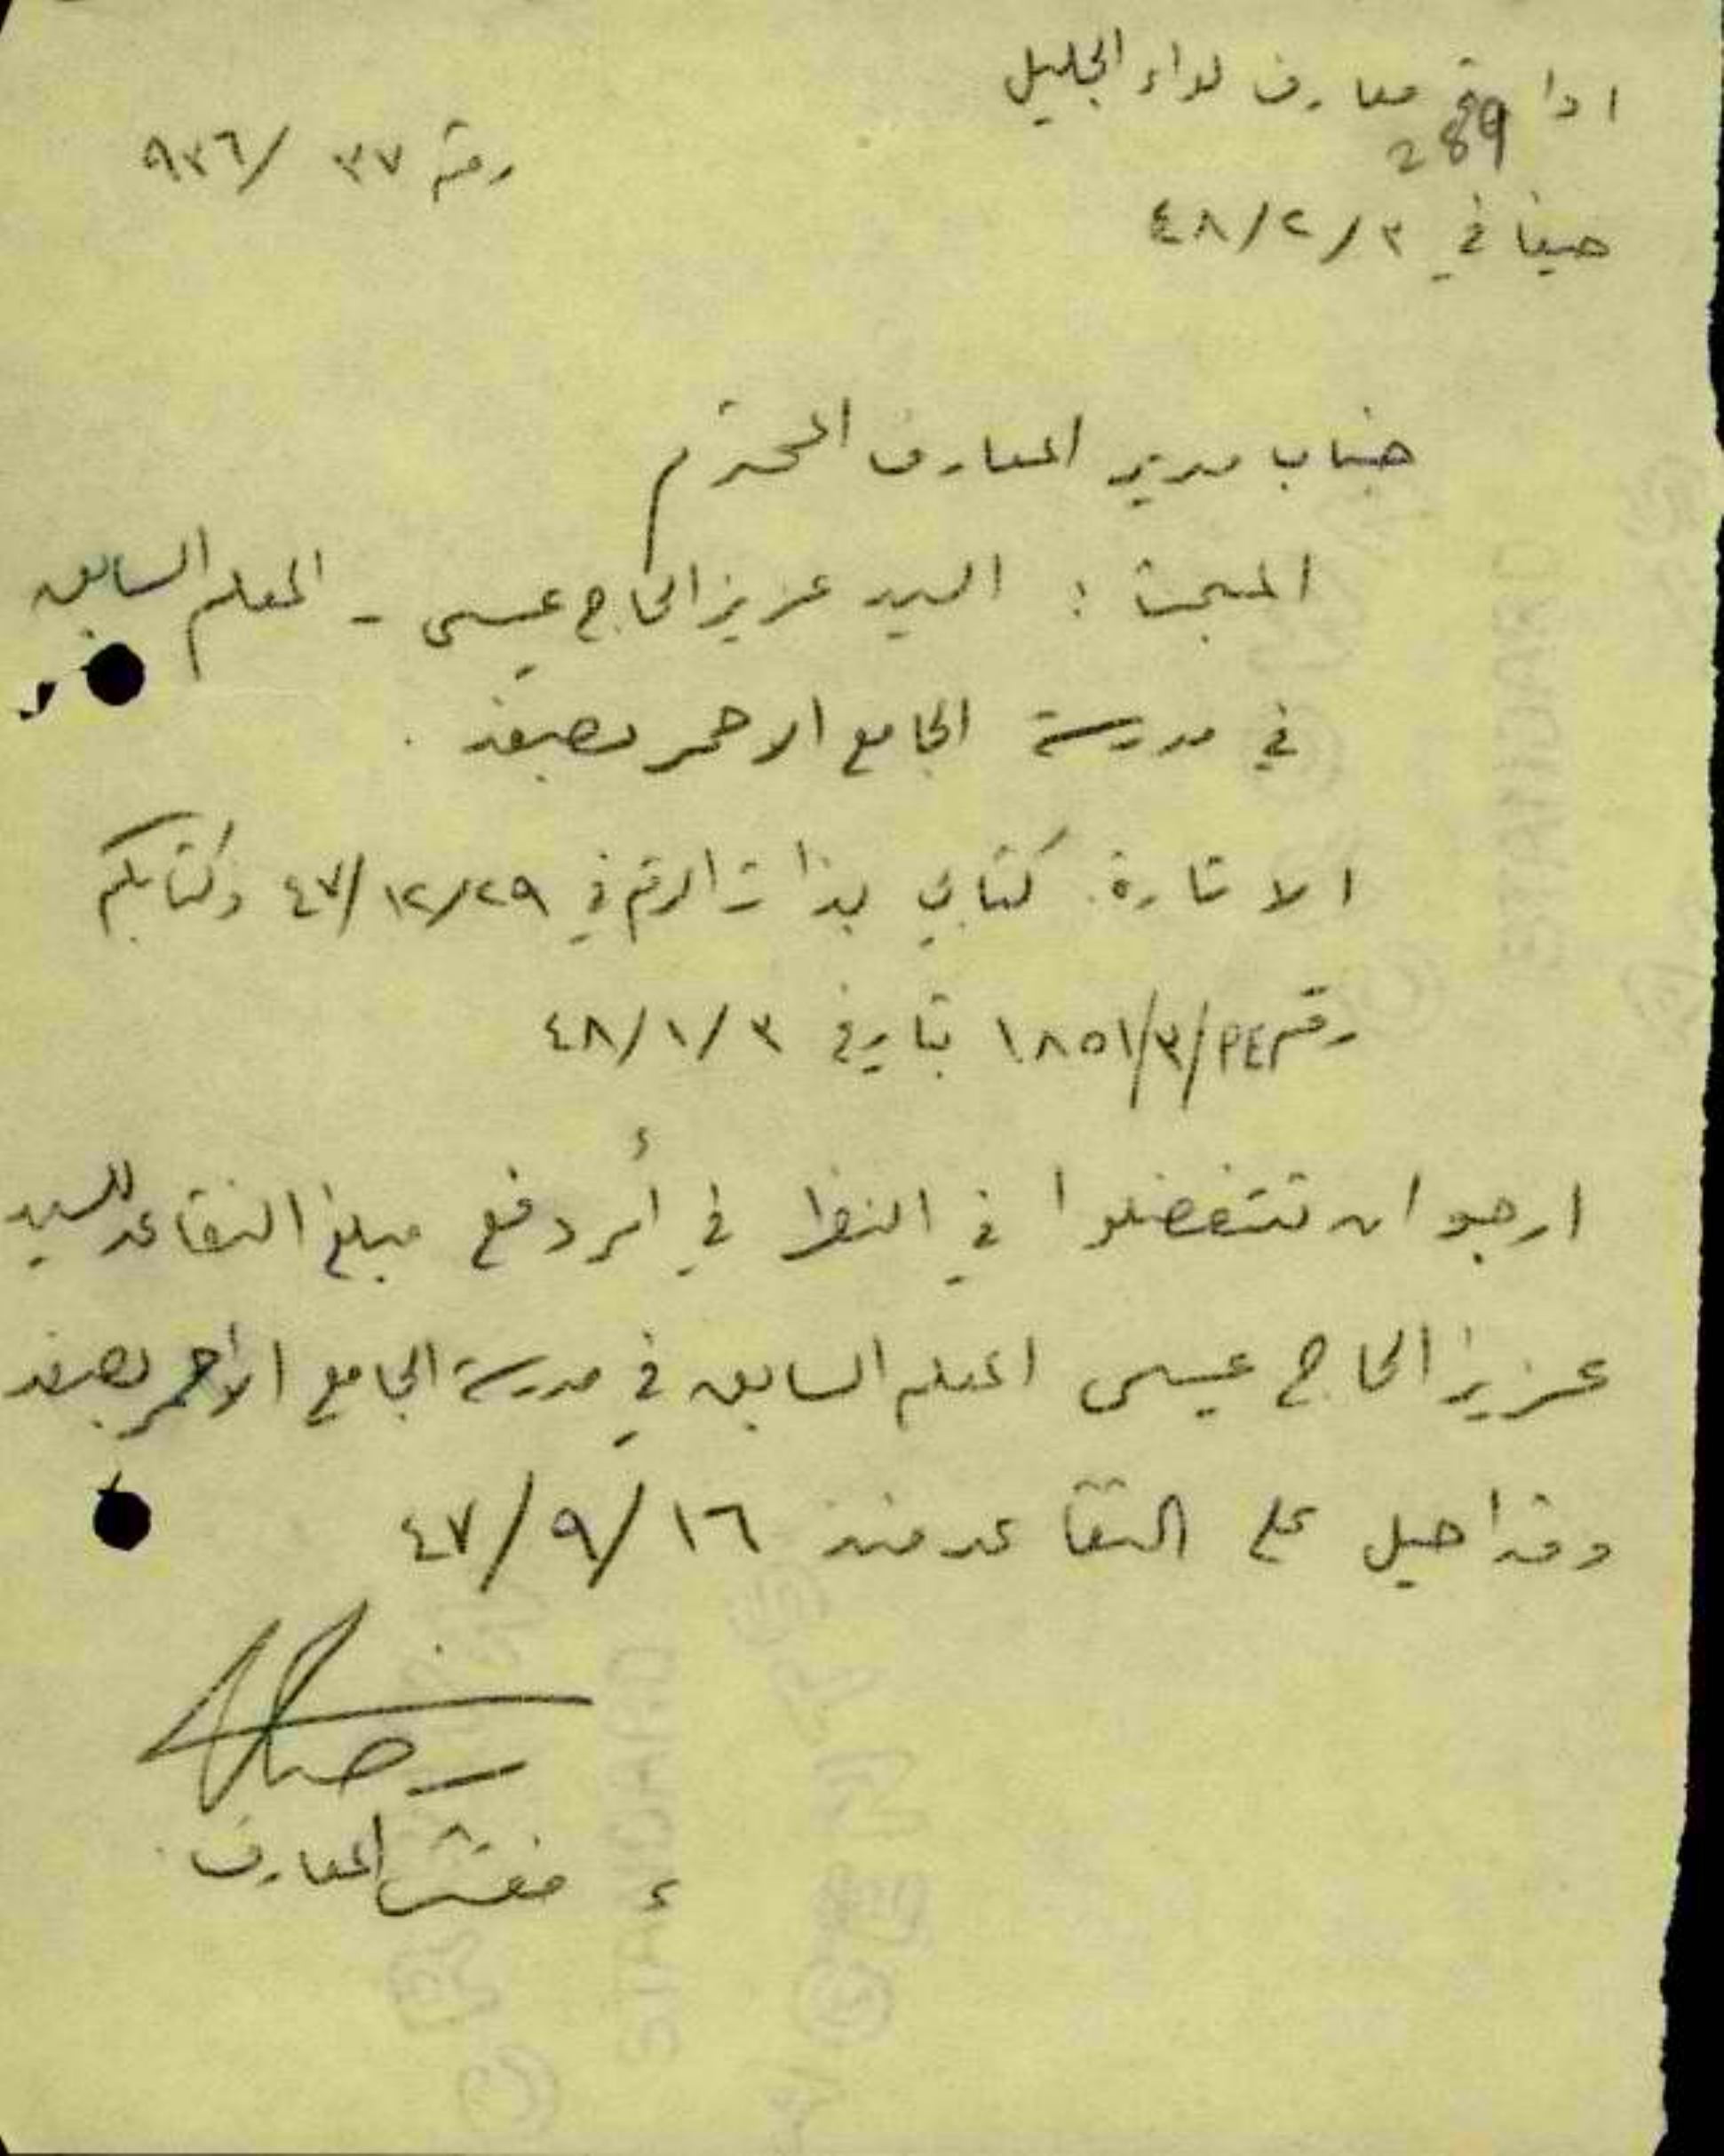 ادارة معارف لواء الجليل
289
رقم ٣٧ /٩٣٦
حيفا في ٣ /٢ /٤٨
جناب مدير المعارف المحترم
المبحث : السيد عزيز الحاج عيسى - المعلم السابق
في مدرسة الجامع الاحمر بصفد .
الاشارة: كتابي بذات الرقم في ٢٩ /١٢ /٤٧ وكتابكم
رقم PE /٣ /١٨٥١ بتاريخ ٣ /١ /٤٨
ارجو ان تتفضلوا في النظر في أمر دفع مبلغ التقاعد للسيد
عزيز الحاج عيسى المعلم السابق في مدرسة الجامع الأحمر بصفد
وقد احيل على التقاعد منذ ١٦ /٩ /٤٧
مفتش المعارف
STANDARD
STANDARD